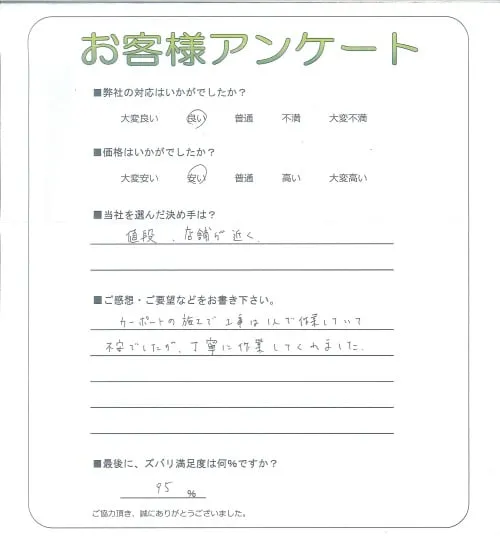 お客様アンケート
■弊社の対応はいかがでしたか？
大変良い 良い 普通 不満 大変不満
■価格はいかがでしたか？
大変安い 安い 普通 高い 大変高い
■当社を選んだ決め手は？
値段、店舗が近く、
■ご感想・ご要望などをお書き下さい。
カーポートの施工で工事は1人で作業していて
不安でしたが、丁寧に作業してくれました。
■最後に、ズバリ満足度は何%ですか？
95 %
ご協力頂き、誠にありがとうございました。